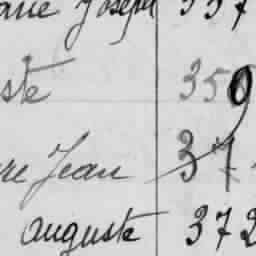 Joseph 337
ste 359
re Jean 37
auguste 372